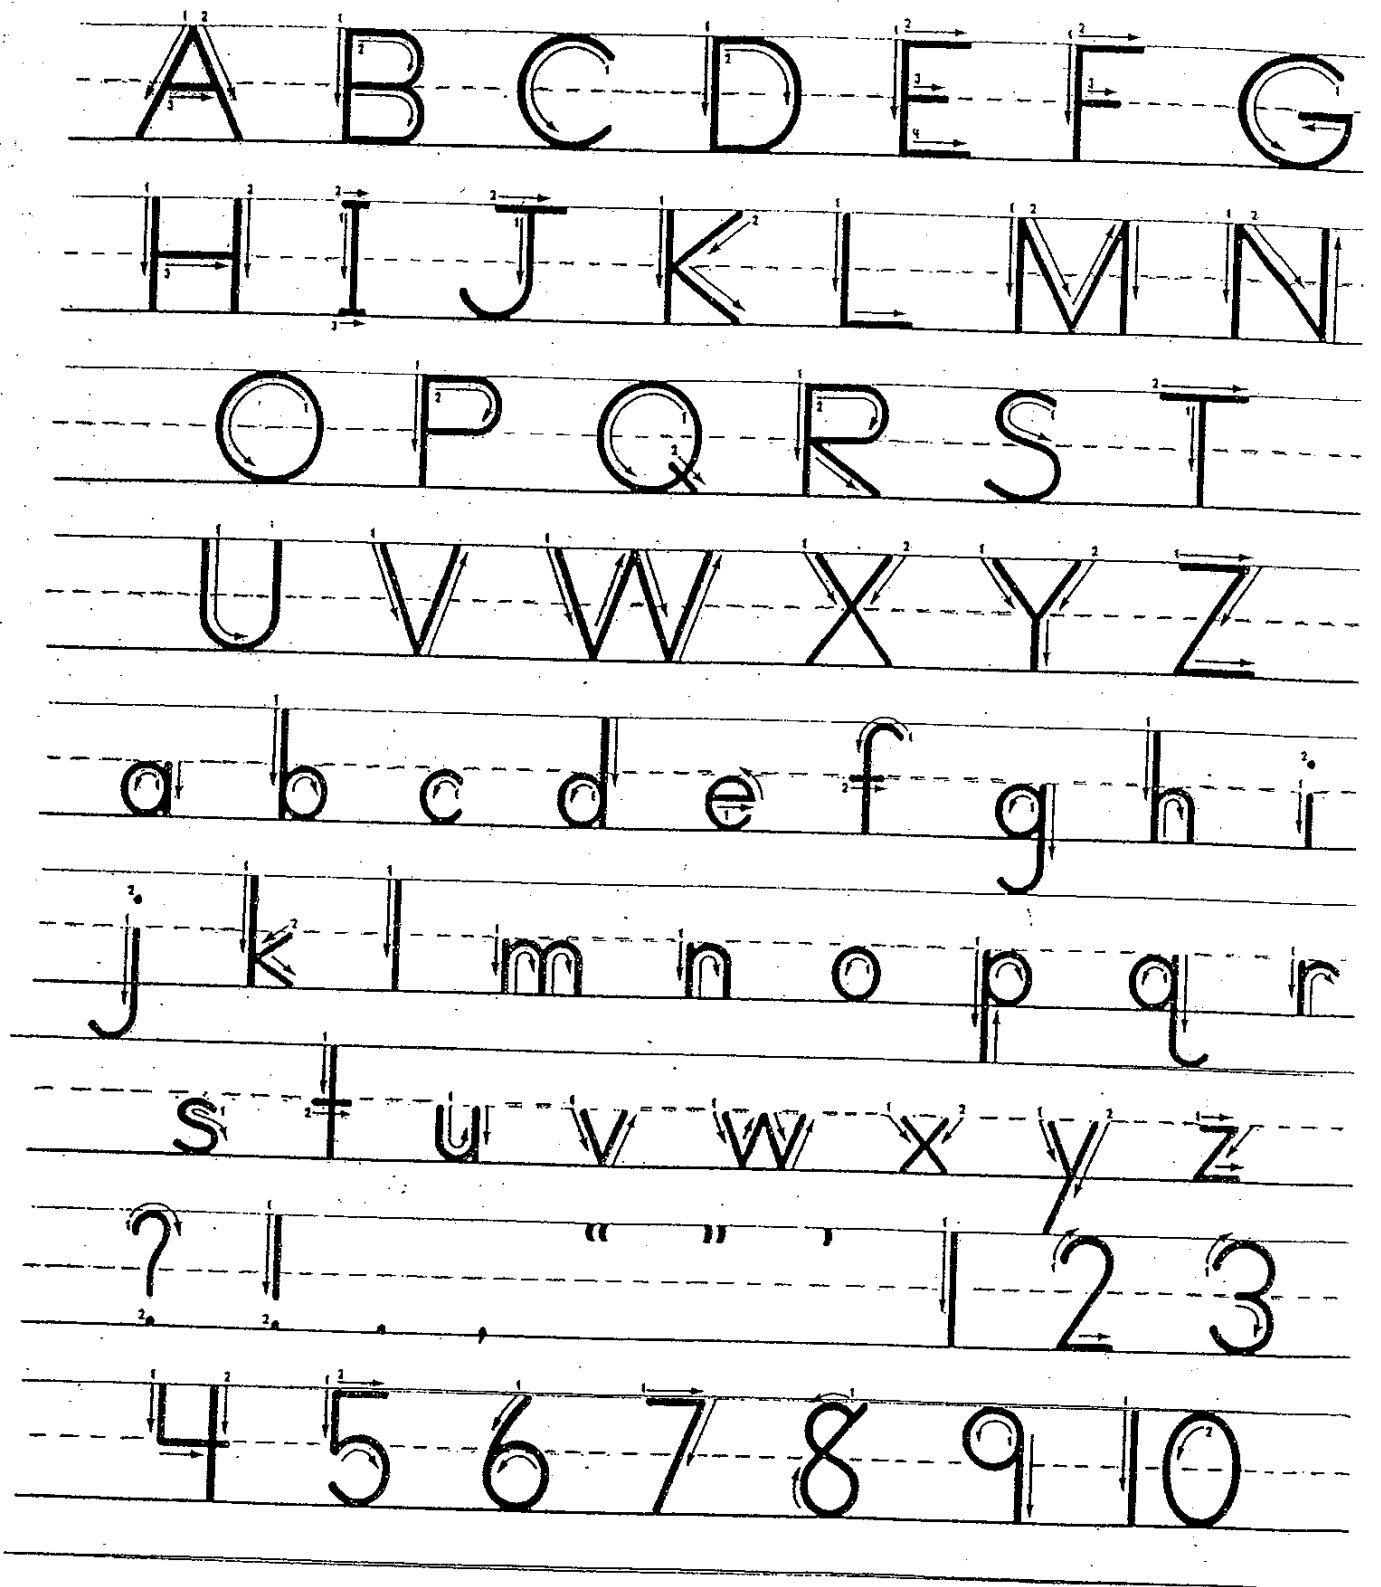 A B C D E F G
H I J K L M N
O P Q R S T
U V W X Y Z
a b c d e f g h i
j k l m n o p q r
s t u v w x y z
? ! . , “ ” ’ 1 2 3
4 5 6 7 8 9 10